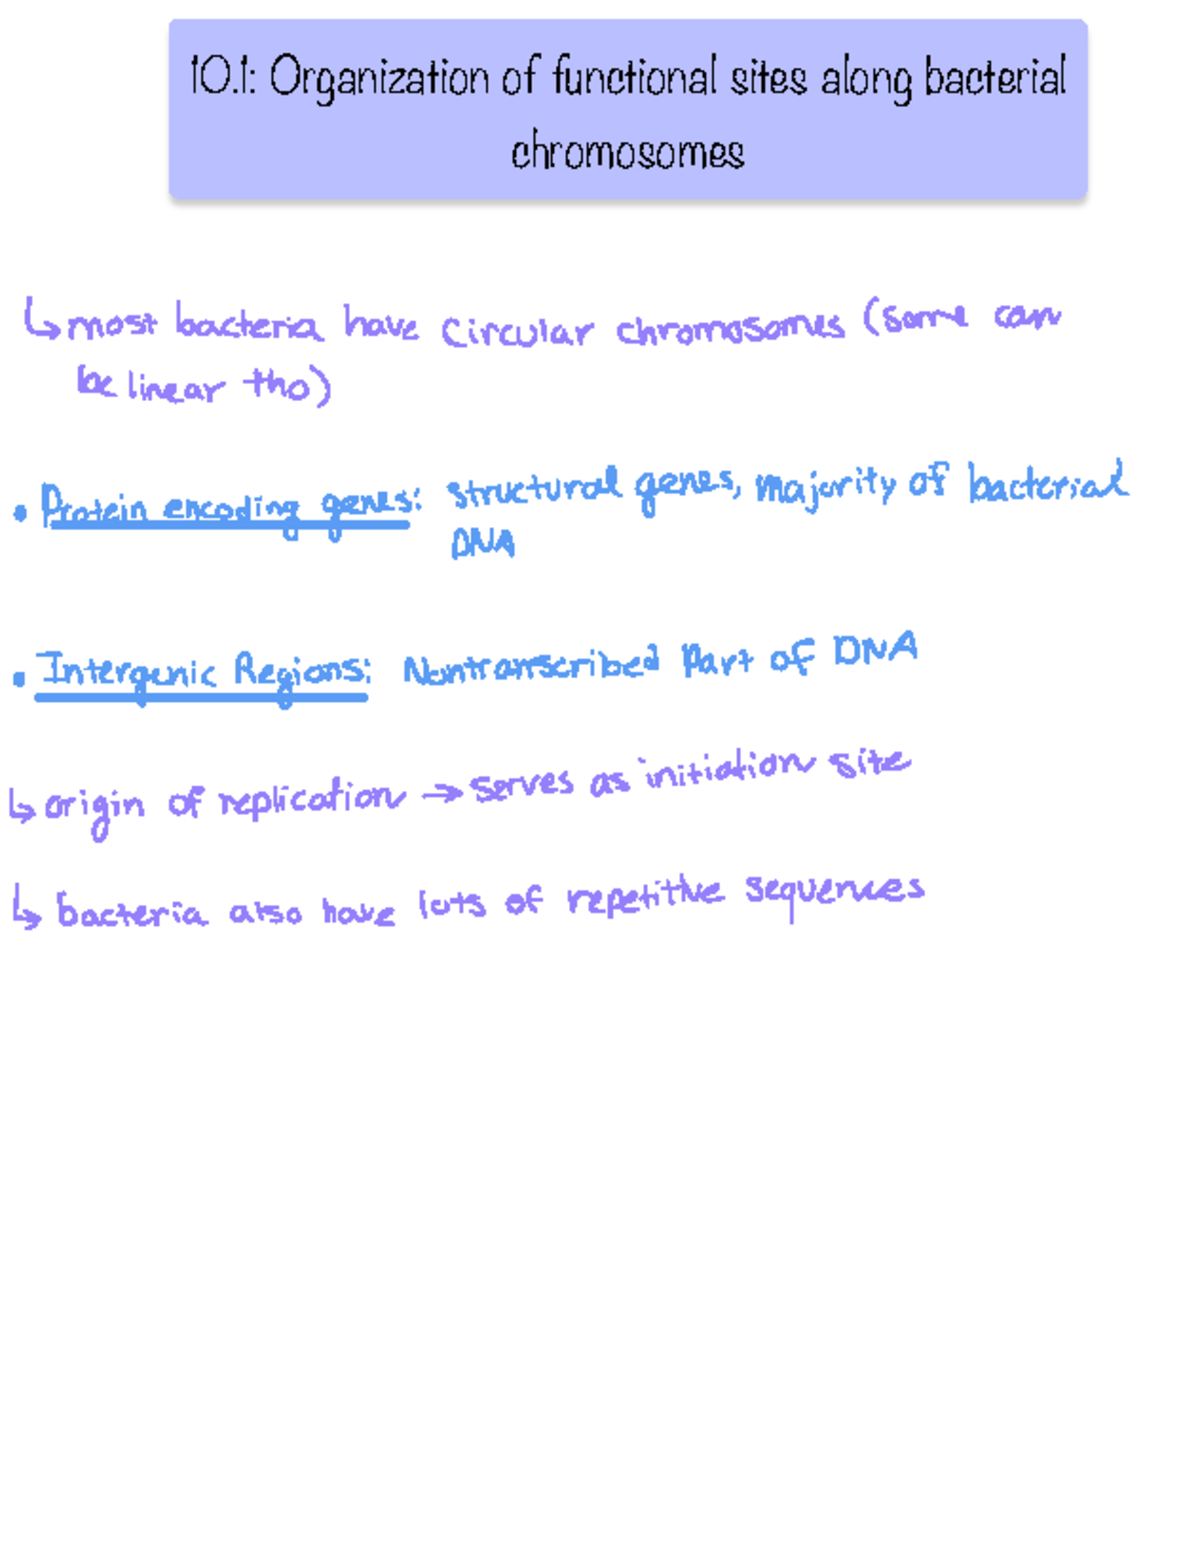 10.1: Organization of functional sites along bacterial
chromosomes
↳ most bacteria have circular chromosomes (some can
be linear tho)
• Protein encoding genes: structural genes, majority of bacterial
DNA
• Intergenic Regions: Nontranscribed part of DNA
↳ origin of replication → serves as initiation site
↳ bacteria also have lots of repetitive sequences